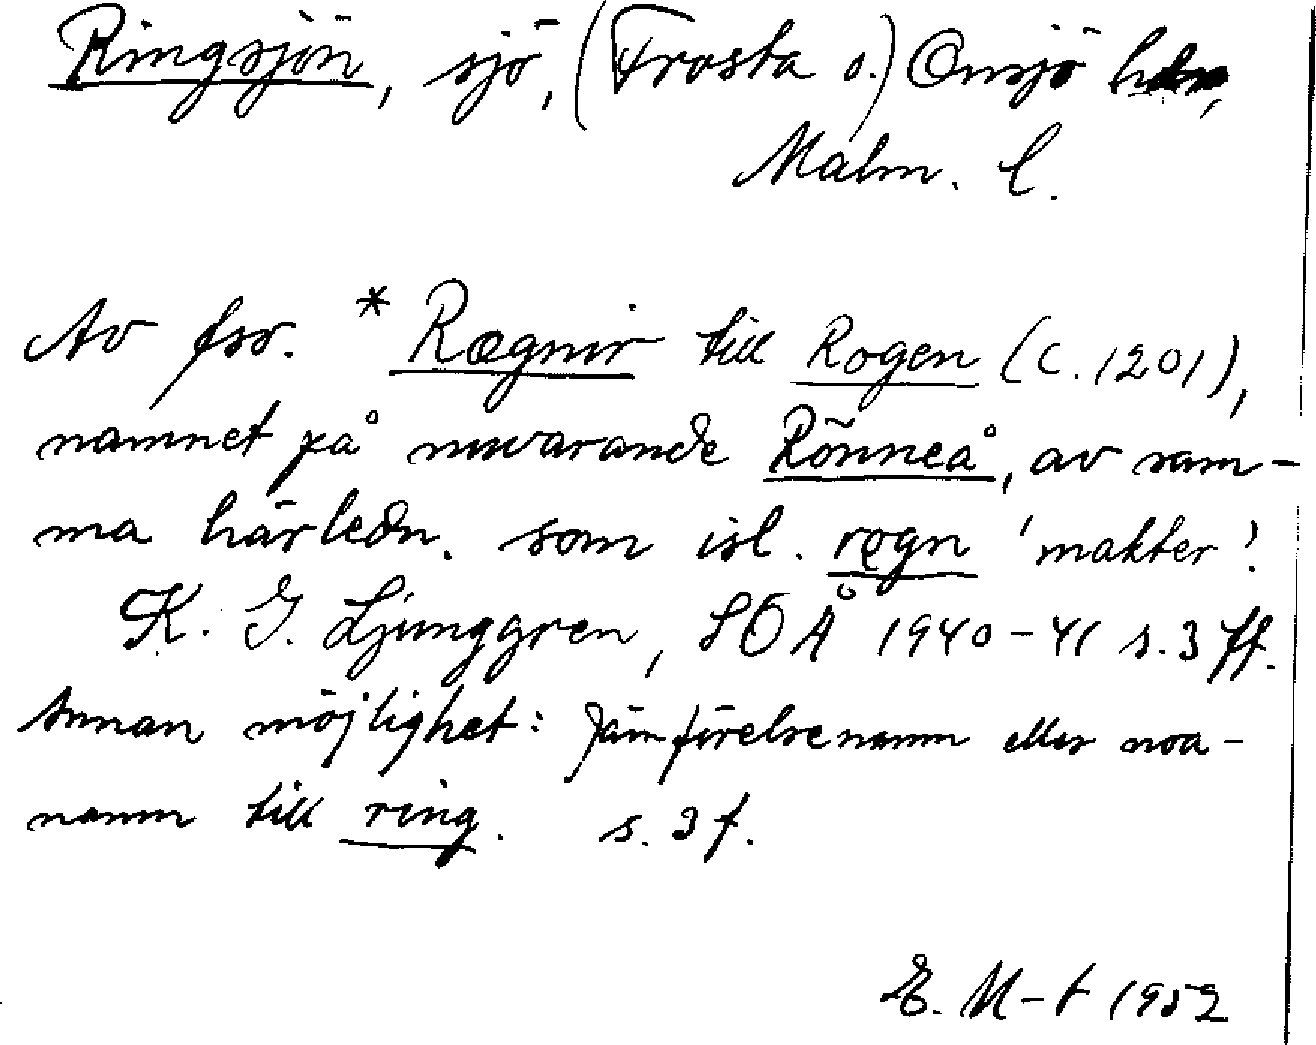 Ringsjön, sjö, (Frosta o.) Onsjö hdr,
Malm. l.
Av fsv. *Rægnir till Rogen (c. 1201),
namnet på nuvarande Rönneå, av sam-
ma härledn. som isl. rǫgn 'makter'.
K. G. Ljunggren, SOÅ 1940-41 s. 3 ff.
Annan möjlighet: Jämförelsenamn eller noa-
namn till ring. s. 3 f.
E. M-t 1952